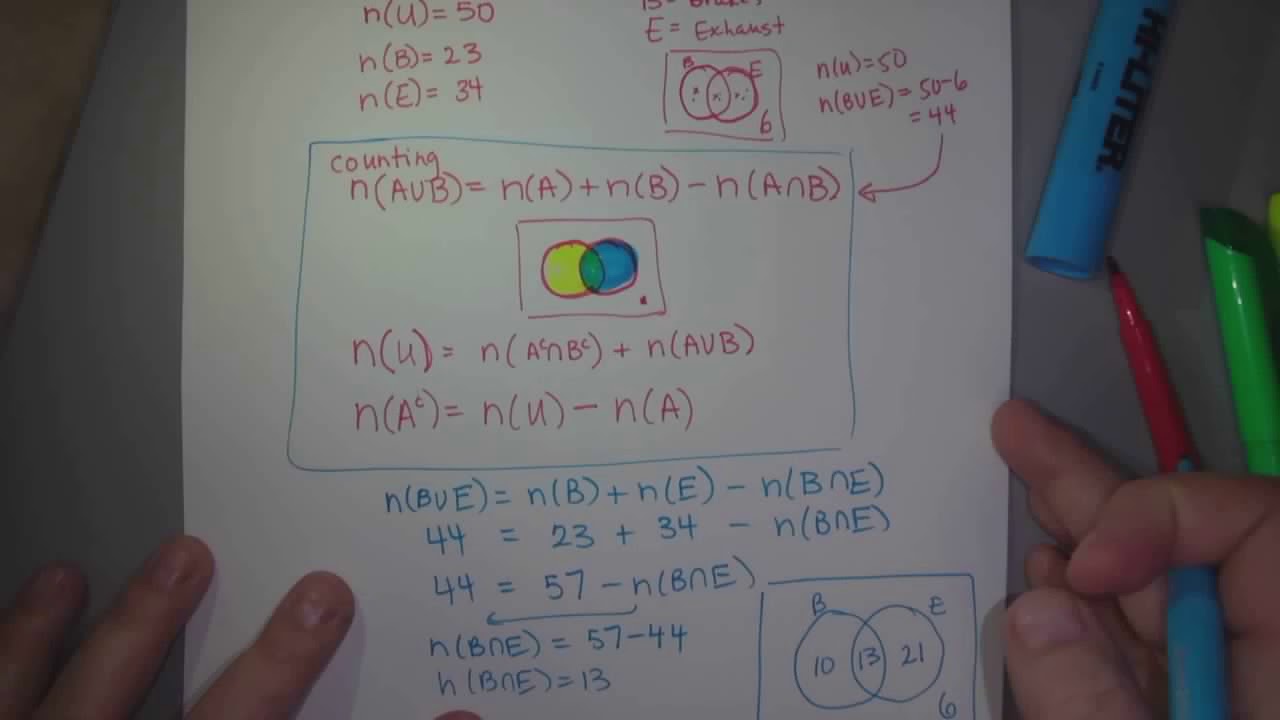 n(U) = 50
n(B) = 23
n(E) = 34
E = Exhaust
B E
6
n(U) = 50
n(BUE) = 50-6
= 44
counting
n(A∪B) = n(A) + n(B) - n(A∩B)
n(U) = n(Aᶜ∩Bᶜ) + n(A∪B)
n(Aᶜ) = n(U) - n(A)
n(B∪E) = n(B) + n(E) - n(B∩E)
44 = 23 + 34 - n(B∩E)
44 = 57 - n(B∩E)
n(B∩E) = 57-44
n(B∩E) = 13
B E
10 13 21
6
HI-LITER